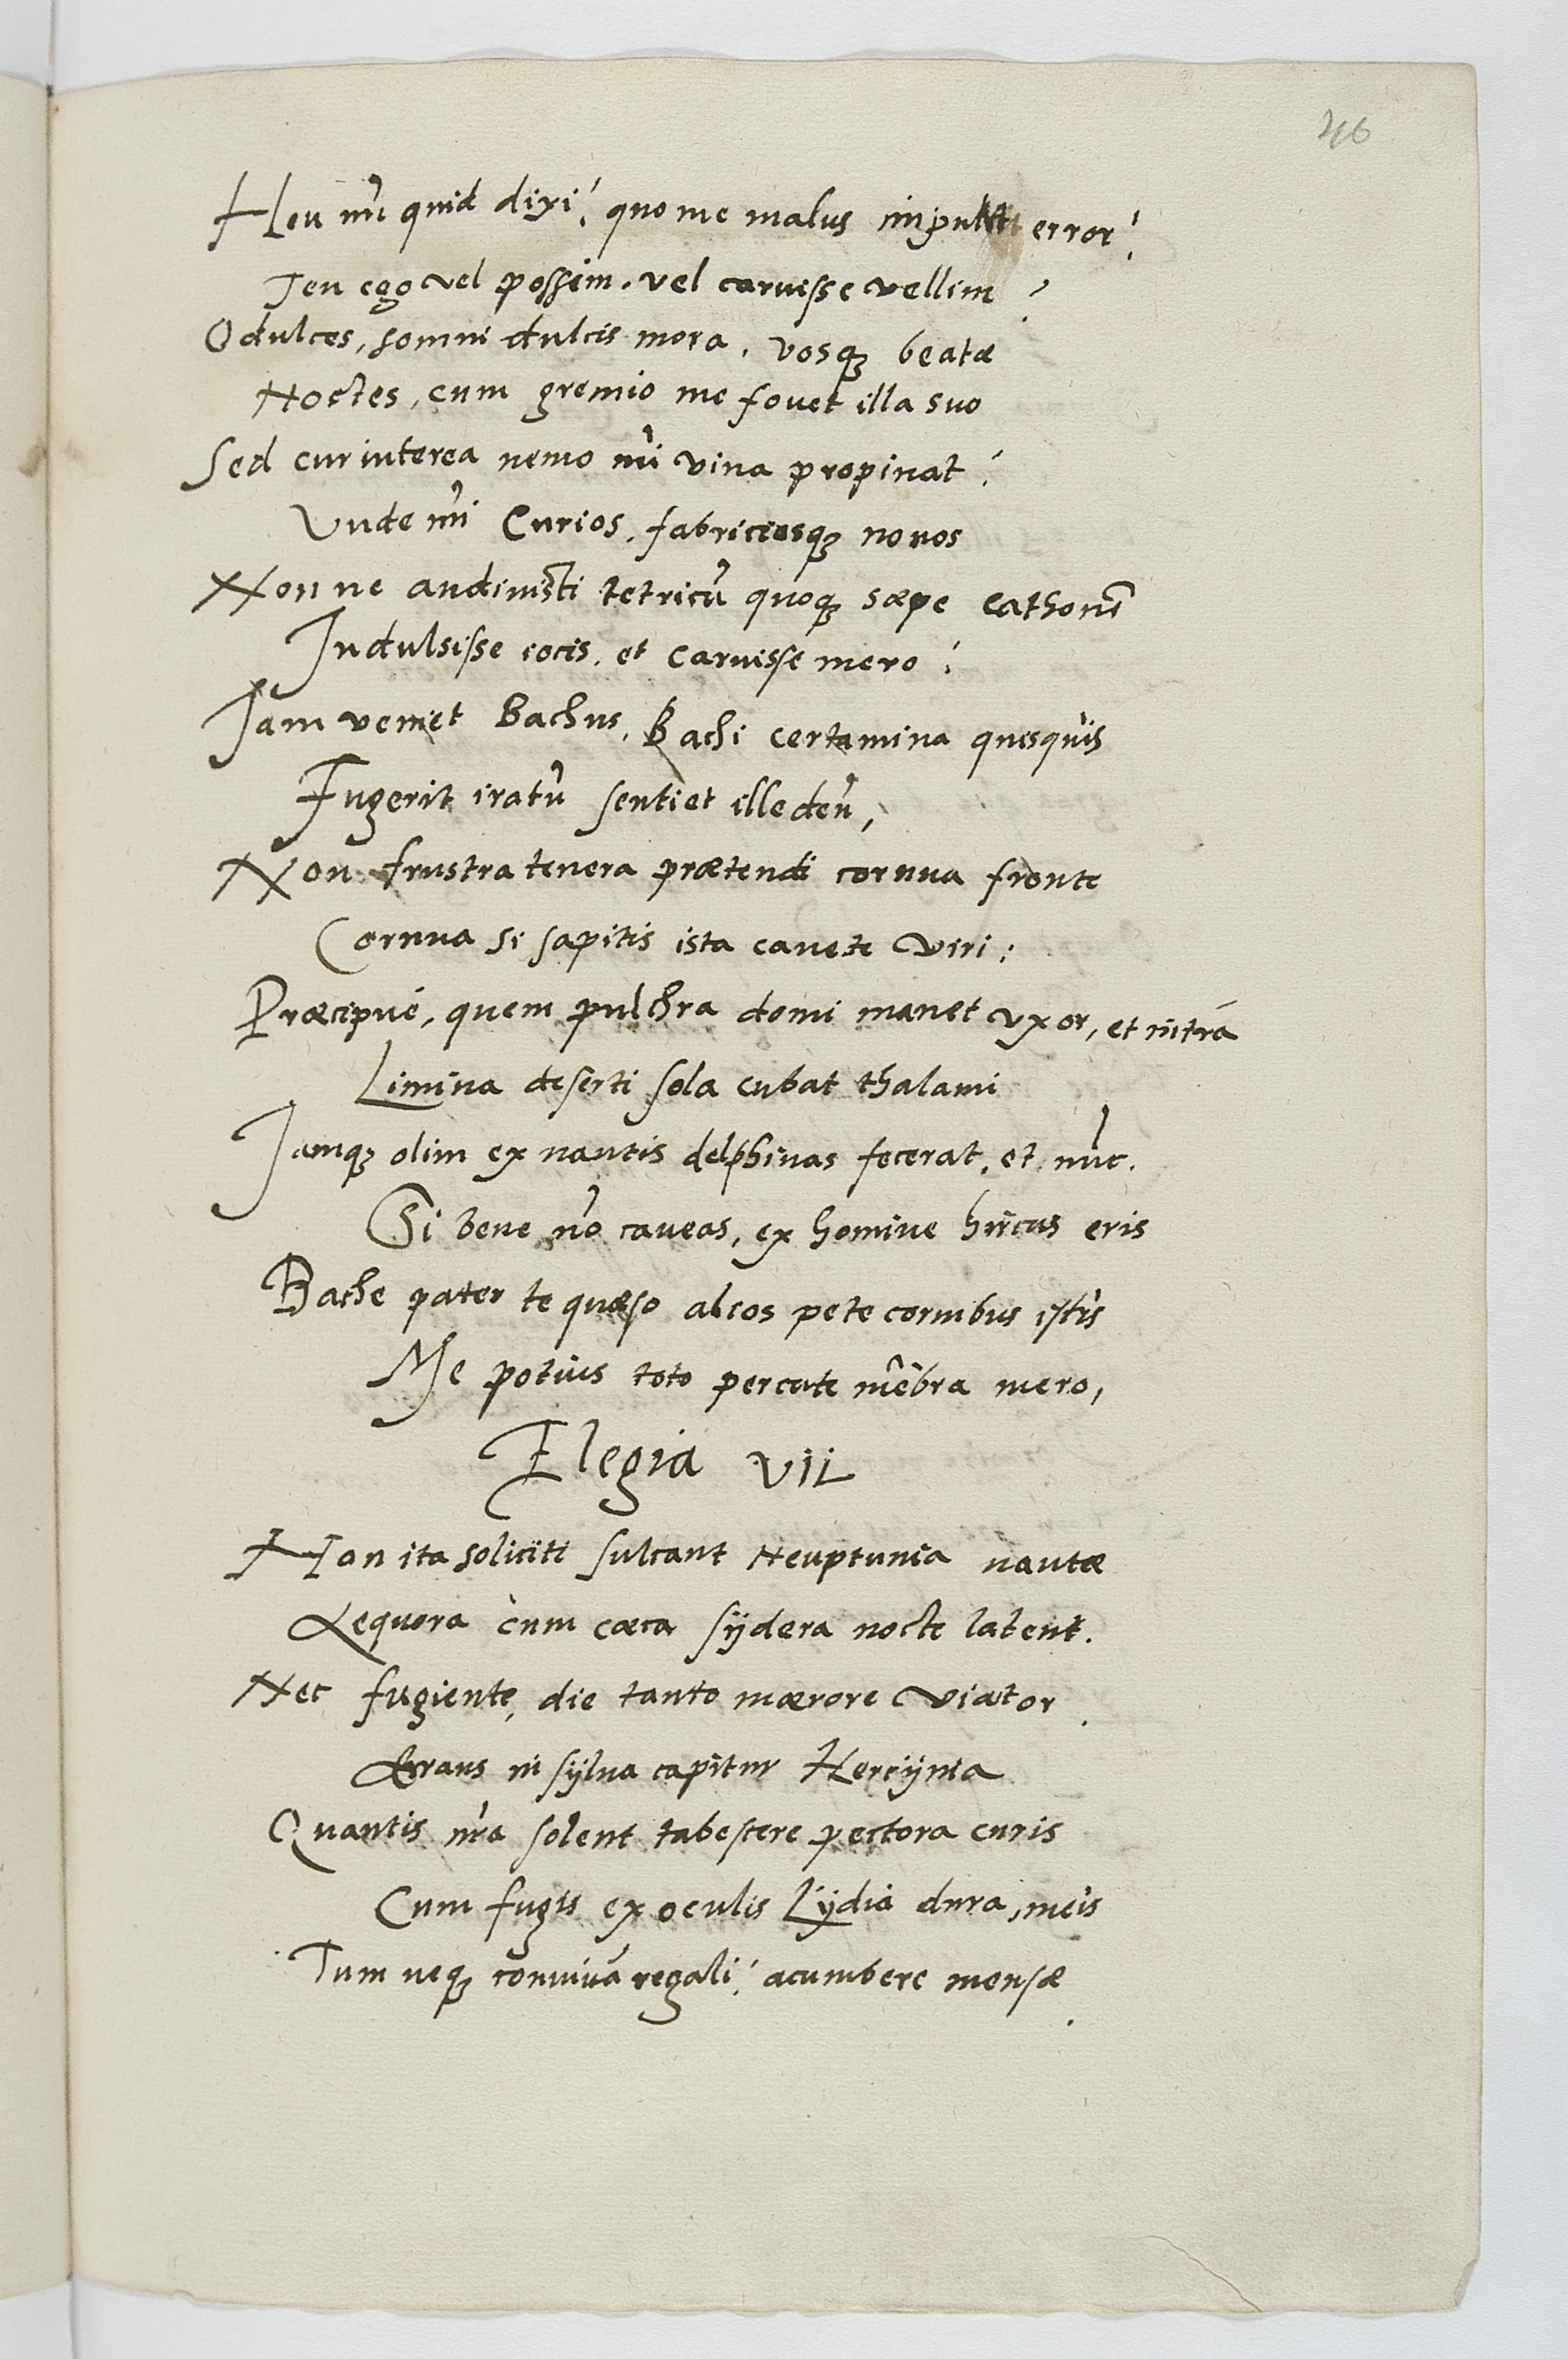 46
Heu mi quid dixi? quo me malus impulit error?
Ten ego vel possim. vel caruisse vellim?
O dulces, somni dulcis mora, vosq beatæ
Noctes, cum gremio me fovet illa suo
Sed cur interea nemo mi vina propinat?
Unde mi Curios, fabriciosq novos
Non ne audiuisti tetricū quoq sæpe cathonē
Indulsisse iocis. et caruisse mero?
Iam veniet Bachus, Bachi certamina quisquis
Fugerit iratū sentiet ille deū,
Non frustra tenera prætendi cornua fronte
Cornua si sapitis ista cavete viri:
Præcipué, quem pulchra domi manet uxor, et intrá
Limina deserti sola cubat thalami
Iamq olim ex nautis delphinas fecerat, et nūc.
Si bene nō caveas, ex homine hircus eris
Bache pater te quæso alios pete cornibus istis
Me potius toto percute mēbra mero,
Elegia VII
Non ita soliciti sulcant Neuptunia nautæ
Aequora cum cæca sÿdera nocte latent.
Nec fugiente, die tanto mærore viator.
Errans in sÿlua capitur Hercÿnia
Quantis nr̄a solent tabescere pectora curis
Cum fugis ex oculis Lÿdia dura, meis
Tum neq conuiuā regali? acumbere mensæ.